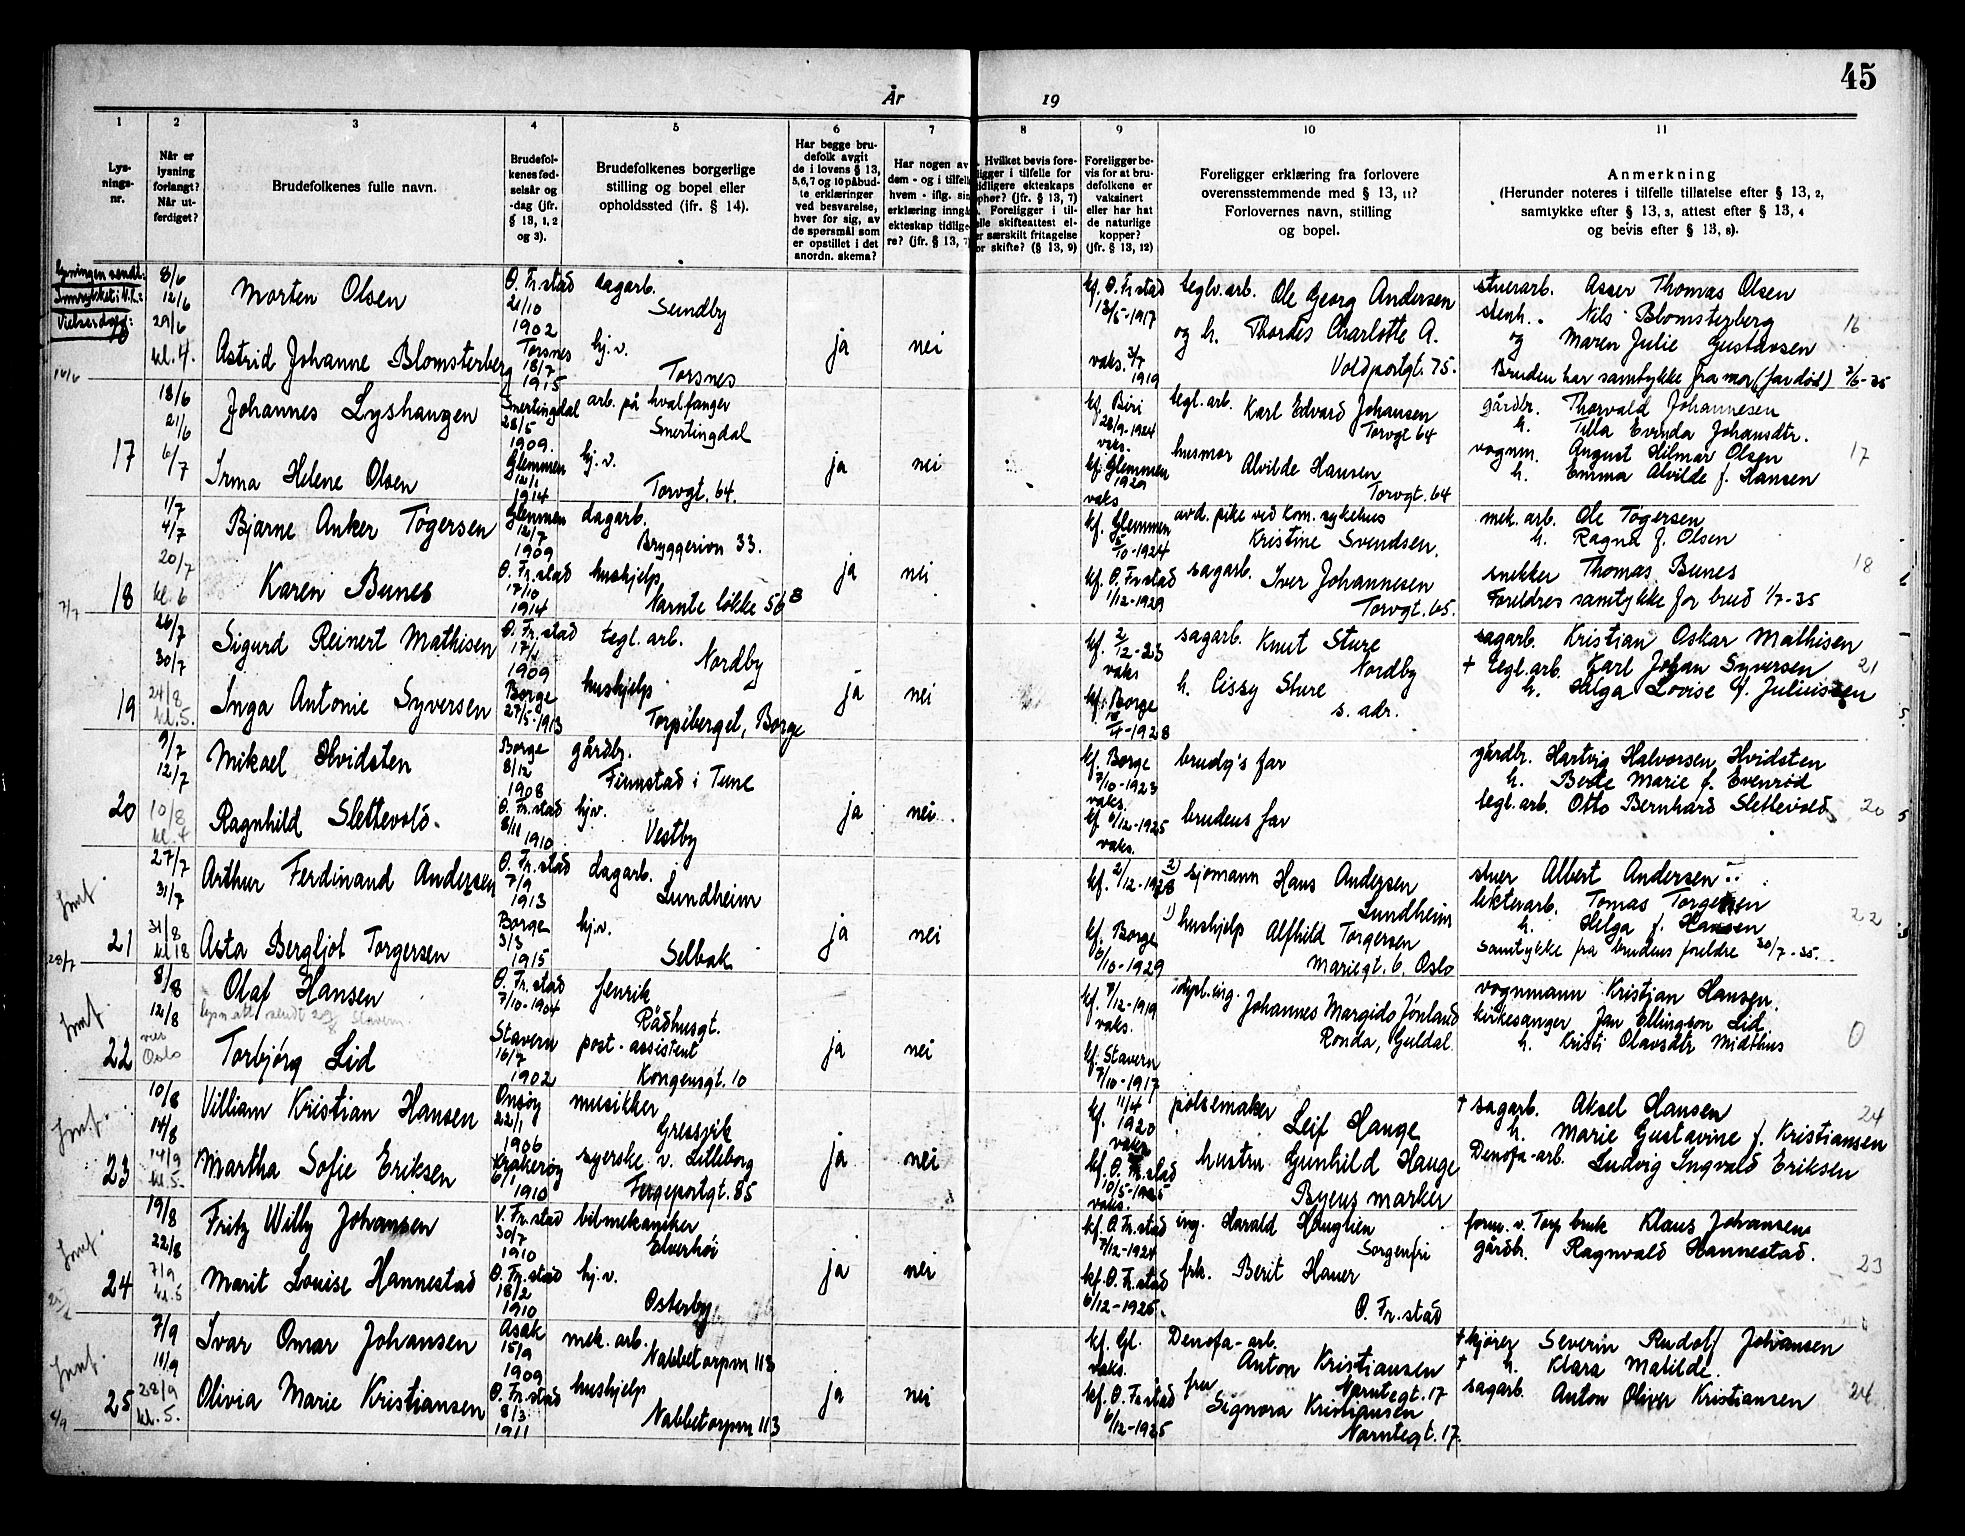 45
År 19
1 2 3 4 5 6 7 8 9 10 11
Lys-
nings-
nr.
Når er
lysning
forlangt?
Når ut-
ferdiget?
Brudefolkenes fulle navn.
Brudefol-
kenes fød-
selsår og
-dag (jfr.
§ 13, 1, 2
og 3).
Brudefolkenes borgerlige
stilling og bopel eller
opholdssted (jfr. § 14).
Har begge bru-
defolk avgit
de i lovens § 13,
5, 6, 7 og 10 påbud-
te erklæringer
ved besvarelse,
hver for sig, av
de spørsmål som
er opstillet i det
anordn. skema?
Har nogen av
dem - og i tilfelle
hvem - iflg. sin
erklæring inngå
ekteskap tidlige-
re? (jfr. § 13, 7
Hvilket bevis fore-
ligger i tilfelle for
tidligere ekteskaps
ophør? (jfr. § 13, 7)
Foreligger i til-
elle skifteattest el-
er særskilt fritagelse
or skifte? (§ 13, 9)
Foreligger be-
vis for at bru-
defolkene er
vaksinert
eller har hat
de naturlige
kopper?
(jfr. § 13, 12)
Foreligger erklæring fra forlovere
overensstemmende med § 13, 11?
Forlovernes navn, stilling
og bopel.
Anmerkning
(Herunder noteres i tilfelle tillatelse efter § 13, 2,
samtykke efter § 13, 3, attest efter § 13, 4
og bevis efter § 13, 8).
lysningen sendt:
8/6
12/6
29/6
kl. 4.
Morten Olsen
Ø. Fr.stad
21/10
1902
dagarb.
Sundby
Astrid Johanne Blomsterberg
Torsnes
18/7
1915
hj.v.
Torsnes
ja
nei
kf. Ø. Fr.stad
13/5-1917
vaks. 3/7
1919
teglv.arb. Ole Georg Andersen
og h. Thordis Charlotte A.
Voldportgt. 75.
stuerarb. Asser Thomas Olsen
stenh. Nils Blomsterberg
og Maren Julie Gustavsen
Bruden har samtykke fra mor (far død) 3/6-35
16
17
18/6
21/6
6/7
Johannes Lyshaugen
Snertingdal
28/5
1909.
arb. på hvalfanger
Snertingdal
Irma Helene Olsen
Glemmen
12/1
1914
hj.v.
Torvgt. 64.
ja
nei
kf. Biri
28/9-1924
vaks.
kf. Glemmen
1929
vaks
tegl.arb. Karl Edvard Johansen
Torvgt 64
husmor Alvilde Hansen
Torvgt. 64
gårdbr. Thorvald Johannesen
h. Tilla Evinda Johansdtr.
vognm. August Hilmar Olsen
h. Emma Alvilde f. Hansen
17
18
7/7
1/7
4/7
20/7
kl. 6
Bjarne Anker Tøgersen
Glemmen
12/7
1909
dagarb.
Bryggerivn 33.
Karen Bunes
Ø. Fr.stad
17/10
1914
hushjelp
Narnte løkke 56 B
ja
nei
kf. Glemmen
5/10-1924
kf. Ø. Fr.stad
1/12-1929
avd. pike ved kom. sykehus
Kristine Svendsen.
sagarb. Iver Johannesen
Torvgt. 65.
mek. arb. Ole Tøgersen
h. Ragna f. Olsen
snekker Thomas Bunes
Foreldres samtykke for brud 1/7-35
18
19
26/7
30/7
24/8
kl. 5.
Sigurd Reinert Mathisen
Ø. Fr.stad
1909
tegl.arb.
Nordby
Inga Antonie Syversen
Borge
27/5-1913
hushjelp
Torpeberget, Borge
ja
nei
kf. 2/12-23
vaks
kf. Borge
sagarb. Knut Sture
Nordby
h. Cissy Sture
s. adr.
sagarb. Kristian Oskar Mathisen
+ tegl.arb. Karl Johan Syversen
h. Helga Lovise f. Juliussen
21
20
9/7
12/7
10/8
kl. 4
Mikael Hvidsten
Borge
8/12
1908
gårdbr.
Finnstad i Tune
Ragnhild Slettevold.
Ø. Fr.stad
8/11
1910.
hjv.
Vestby
ja
nei
kf. Borge
7/10-1923
vaks.
kf 6/12-1925
vaks.
brudg's far
brudens far
gårdbr. Hartvig Halvorsen Hvidsten
h. Berte Marie f. Evenrød
tegl.arb. Otto Bernhard Slettevold
20
21
28/7
27/7
31/7
31/8
kl 18
Arthur Ferdinand Andersen
Ø. Fr.stad
7/9
1913
dagarb.
Lundheim
Asta Bergljot Torgersen
Borge
3/3
1915
hj.v.
Selbak
ja
nei
kf. 2/12-1928
kf. Borge
6/10-1929
2) sjømann Hans Andersen
Lundheim
1) hushjelp Alfhild Torgersen
Mariegt. 6, Oslo
stuer Albert Andersen
Tomas Torgersen
h. Helga f. Hansen
samtykke fra brudens foreldre 30/7-35.
22
22
8/8
12/8
Oslo
Olaf Hansen
Ø. Fr.stad
7/10-1904
fenrik
Rådhusgt.
Torbjørg Lid
Stavern
16/7
1902
post-assistent
Kongensgt. 10
ja
nei
kf. 7/12-1919
vaks.
kf. Stavern
7/10-1917
dipl.ing. Johannes Margido Jønland
Ronda, Guldal
vognmann Kristian Hansen.
kirkesanger Jan Ellingson Lid
h. Kristi Olavsdtr Midthus
0
23
10/8
14/8
14/9
kl. 5.
Villiam Kristian Hansen
Onsøy
22/1
1906
musikker
Gressvik
Martha Sofie Eriksen
Kråkerøy
6/1
1910
syerske v. Lilleborg
Fergeportgt. 85
ja
nei
kf. 11/4
1920
vaks
kf. Ø. Fr.stad
10/5-1925
vaks.
pølsemaker
Leif Hauge
hustru Gunhild Hauge
Byens marker
+ sagarb. Aksel Hansen
h. Marie Gustavine f. Kristiansen
Denofa-arb. Ludvig Ingvald Eriksen
24
24
19/8
22/8
7/9
kl. 5
Fritz Willy Johansen
V. Fr.stad
30/7
1910
bilmekaniker
Elverhøi
Marit Louise Hannestad
Ø. Fr.stad
18/2
1910
hj.v.
Østerby
ja
nei
kf. Ø. Fr.stad
7/12-1924
kf. Ø. Fr.stad
6/12-1925.
ing. Harald Hauglien
Sorgenfri
frk. Berit Hauer
Ø. Fr.stad
form. v. Torp bruk Klaus Johansen
gårdbr. Ragnvald Hannestad.
23
25
7/9
11/9
28/9
kl. 5.
Ivar Omar Johansen
Asak
15/9
1909
mek. arb.
Nabbetorpvn 113
Olivia Marie Kristiansen
Ø. Fr.stad
8/3
1911
hushjelp
Nabbetorpvn 113
ja
nei
kf. Gl.
vaks.
kf. Ø. Fr.stad
6/12-1925
Denofa-arb.
Anton Kristiansen
Narntegt. 17
fru Signora Kristiansen
Narntegt. 17.
+ kjører Severin Rudolf Johansen
+ h. Klara Matilde.
sagarb. Anton Oliver Kristiansen
24